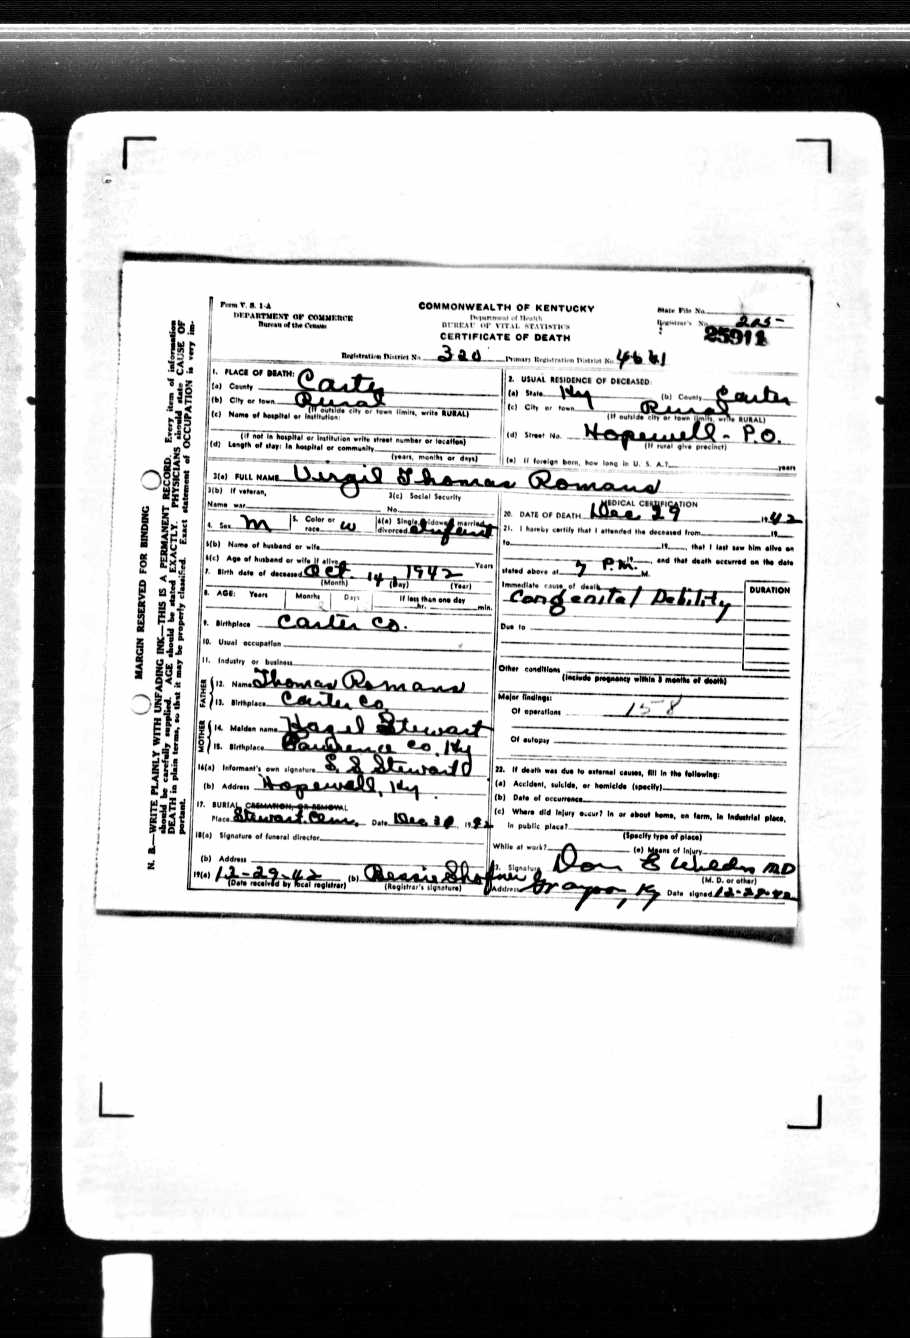 Form V. S. 1-A
DEPARTMENT OF COMMERCE
Bureau of the Census
COMMONWEALTH OF KENTUCKY
Department of Health
BUREAU OF VITAL STATISTICS
CERTIFICATE OF DEATH
State File No.
Registrar's No. 205
25911
Registration District No. 320 Primary Registration District No. 4661
1. PLACE OF DEATH:
(a) County Carter
(b) City or town Rural
(If outside city or town limits, write RURAL)
(c) Name of hospital or institution:
(If not in hospital or institution write street number or location)
(d) Length of stay: In hospital or community
(years, months or days)
2. USUAL RESIDENCE OF DECEASED:
(a) State Ky (b) County Carter
(c) City or town Rural
(If outside city or town limits, write RURAL)
(d) Street No. Hopewell - P.O.
(If rural give precinct)
(e) If foreign born, how long in U. S. A.? years
3(a) FULL NAME Virgil Thomas Romans
3(b) If veteran,
Name war
3(c) Social Security
No.
4. Sex M 5. Color or race W 6(a) Single, widowed, married, divorced Infant
6(b) Name of husband or wife
6(c) Age of husband or wife if alive Years
7. Birth date of deceased Oct. 14 1942
(Month) (Day) (Year)
8. AGE: Years Months Days If less than one day
hr. min.
9. Birthplace Carter Co.
10. Usual occupation
11. Industry or business
FATHER
12. Name Thomas Romans
13. Birthplace Carter Co
MOTHER
14. Maiden name Hazel Stewart
15. Birthplace Lawrence Co, Ky
16(a) Informant's own signature S. S. Stewart
(b) Address Hopewell, Ky.
17. BURIAL, CREMATION, OR REMOVAL
Place Stewart Cem. Date Dec 30 1942
18(a) Signature of funeral director
(b) Address
19(a) 12-29-42 (b) Bessie Shofner
(Date received by local registrar) (Registrar's signature)
MEDICAL CERTIFICATION
20. DATE OF DEATH Dec 29 1942
21. I hereby certify that I attended the deceased from 19
to 19, that I last saw him alive on
19, and that death occurred on the date
stated above at 7 P.M. M.
Immediate cause of death DURATION
Congenital Debility
Due to
Other conditions
(Include pregnancy within 3 months of death)
Major findings:
Of operations 158
Of autopsy
22. If death was due to external causes, fill in the following:
(a) Accident, suicide, or homicide (specify)
(b) Date of occurrence
(c) Where did injury occur? In or about home, on farm, in industrial place,
in public place?
(Specify type of place)
While at work? (e) Means of injury
23. Signature Don E Wilder MD
(M. D. or other)
Address Grayson, Ky Date signed 12-29-42
MARGIN RESERVED FOR BINDING
N. B.—WRITE PLAINLY WITH UNFADING INK—THIS IS A PERMANENT RECORD. Every item of information
should be carefully supplied. AGE should be stated EXACTLY. PHYSICIANS should state CAUSE OF
DEATH in plain terms, so that it may be properly classified. Exact statement of OCCUPATION is very im-
portant.